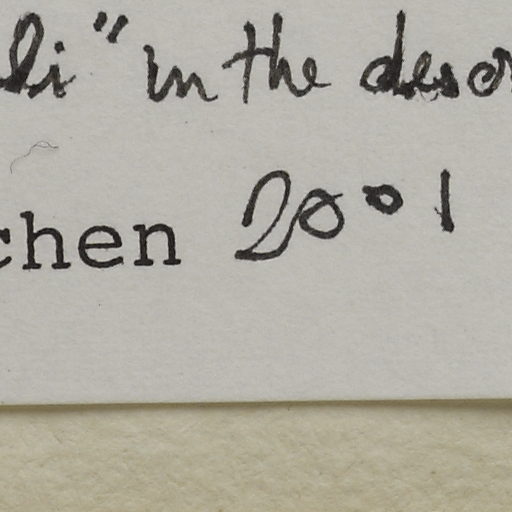 li" in the
chen 2001